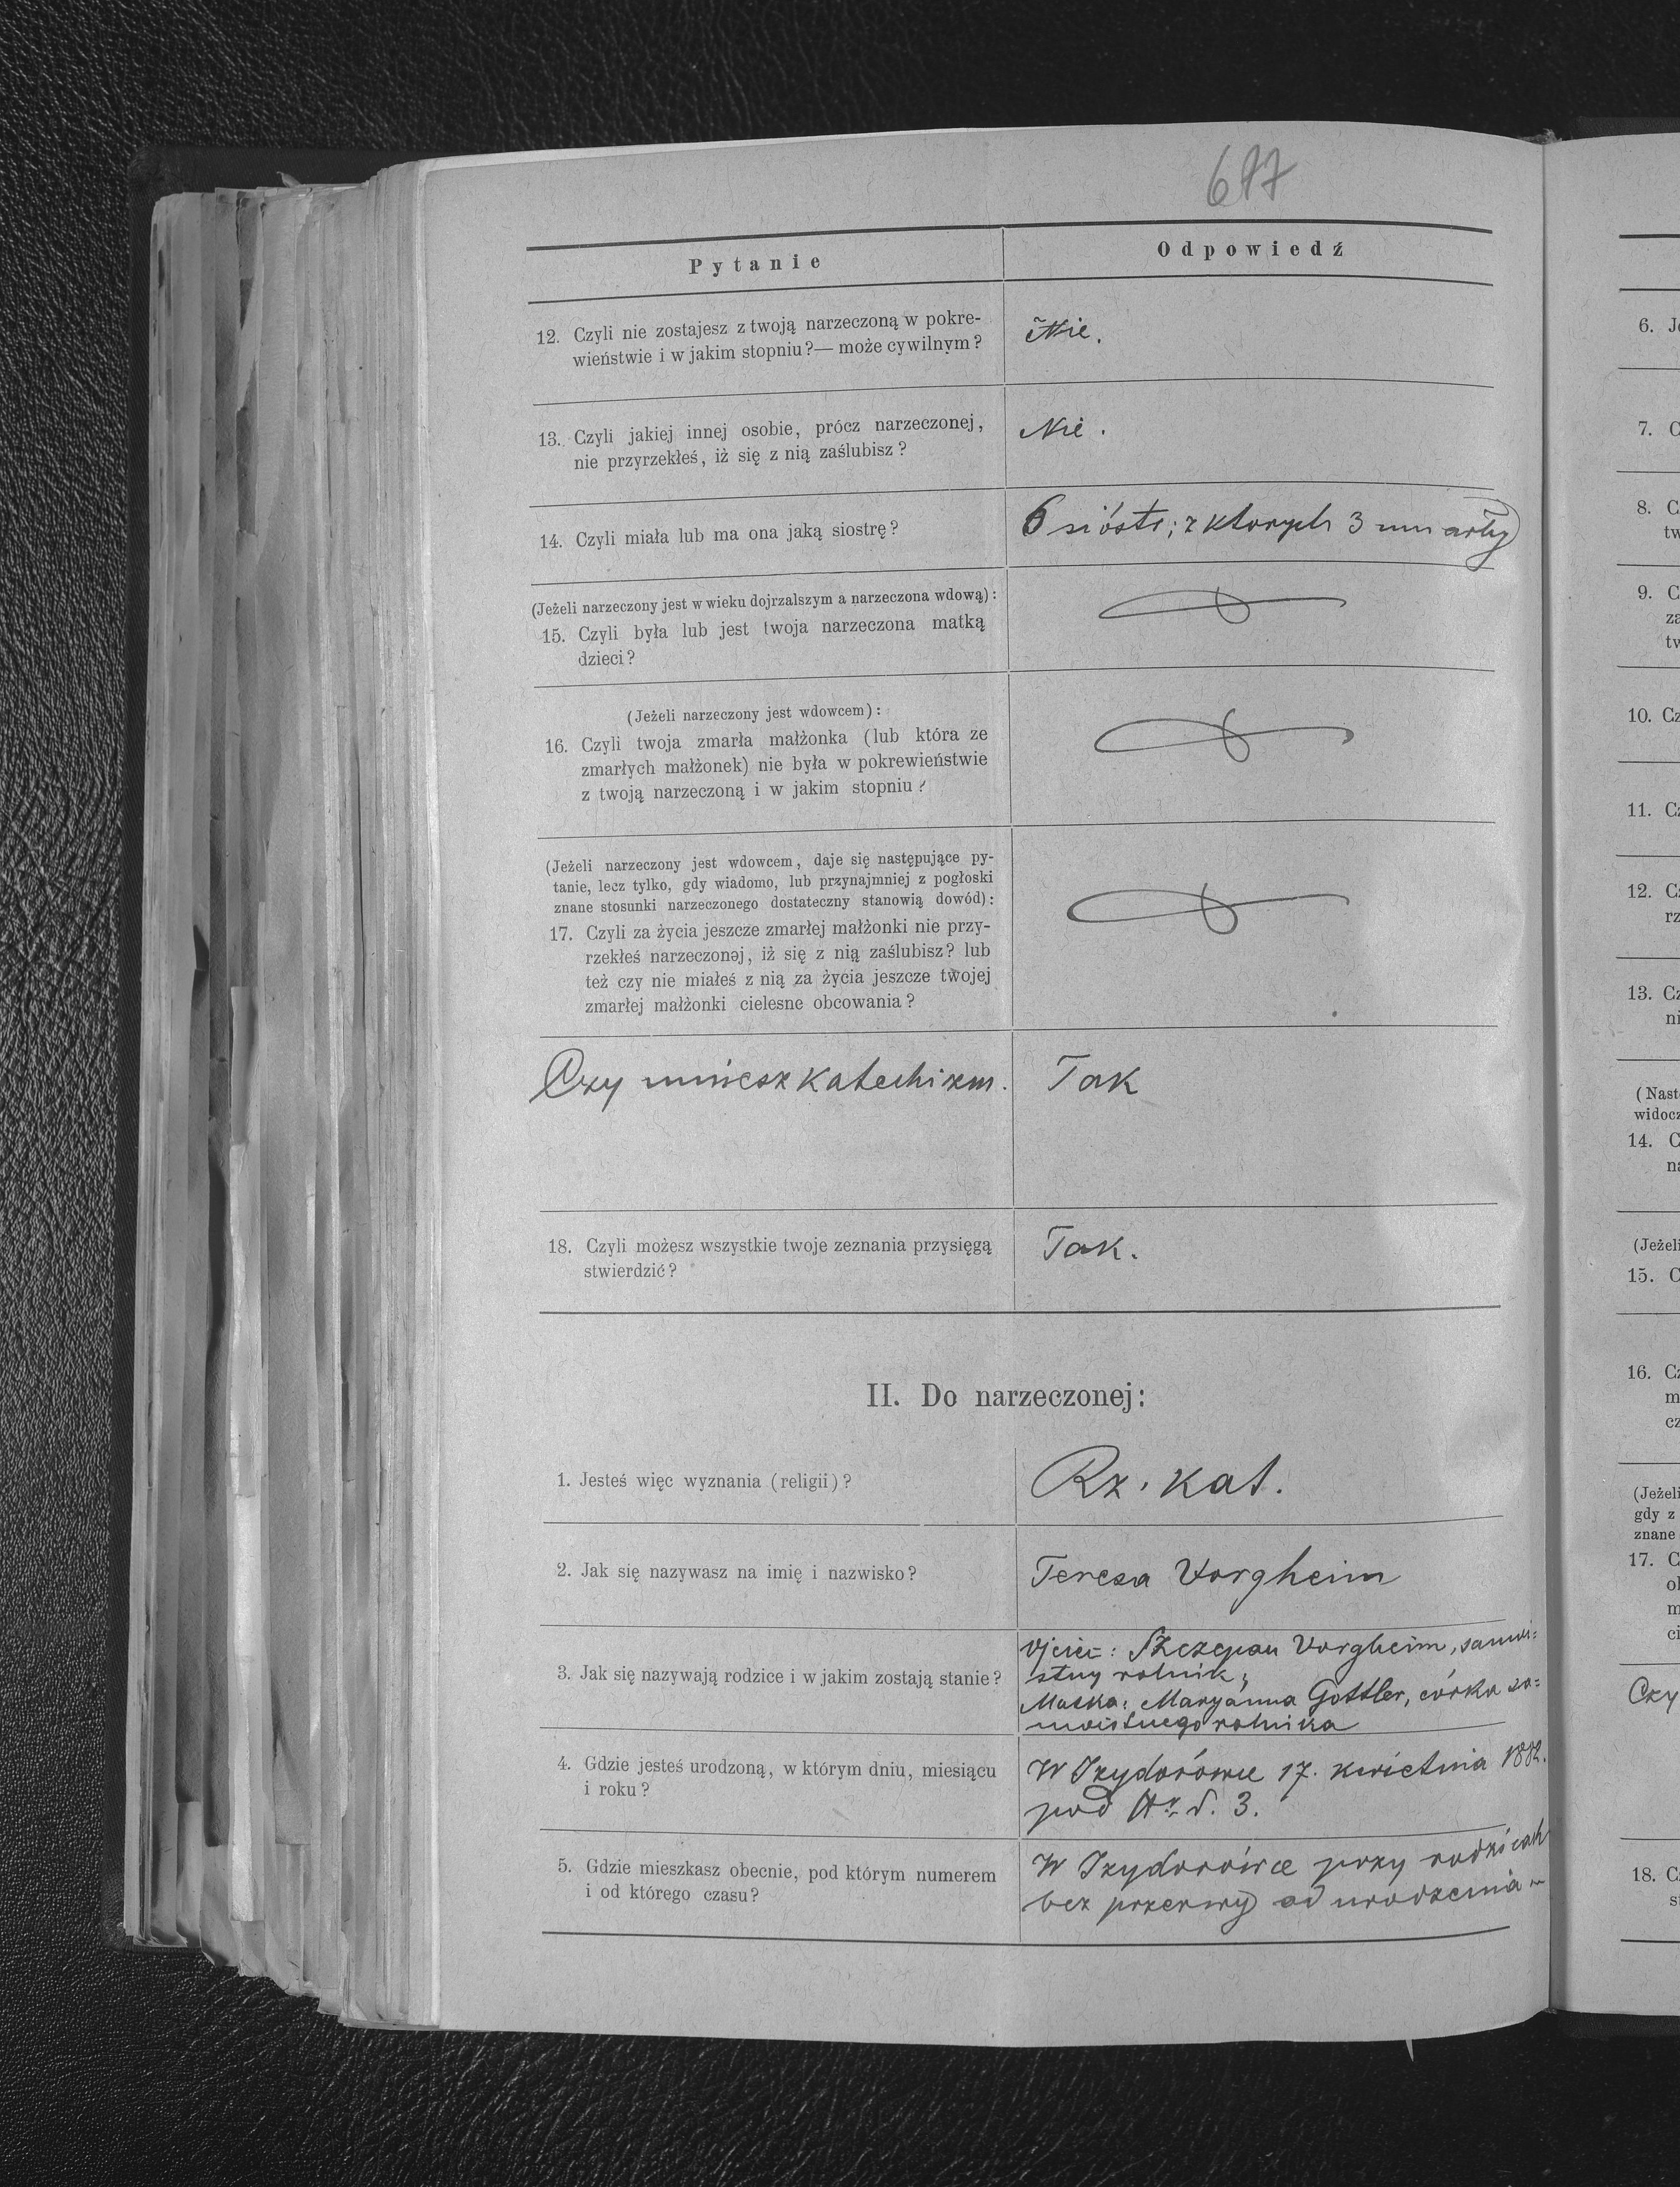 677
Pytanie
Odpowiedź
12. Czyli nie zostajesz z twoją narzeczoną w pokre-
wieństwie i w jakim stopniu?— może cywilnym?
Nie.
13. Czyli jakiej innej osobie, prócz narzeczonej,
nie przyrzekłeś, iż się z nią zaślubisz?
Nie.
14. Czyli miała lub ma ona jaką siostrę?
6 sióstr; z ktorych 3 umarły
(Jeżeli narzeczony jest w wieku dojrzalszym a narzeczona wdową):
15. Czyli była lub jest twoja narzeczona matką
dzieci?
(Jeżeli narzeczony jest wdowcem):
16. Czyli twoja zmarła małżonka (lub która ze
zmarłych małżonek) nie była w pokrewieństwie
z twoją narzeczoną i w jakim stopniu?
(Jeżeli narzeczony jest wdowcem, daje się następujące py-
tanie, lecz tylko, gdy wiadomo, lub przynajmniej z pogłoski
znane stosunki narzeczonego dostateczny stanowią dowód):
17. Czyli za życia jeszcze zmarłej małżonki nie przy-
rzekłeś narzeczonej, iż się z nią zaślubisz? lub
też czy nie miałeś z nią za życia jeszcze twojej
zmarłej małżonki cielesne obcowania?
Czy umiesz katechizm.
Tak
18. Czyli możesz wszystkie twoje zeznania przysięgą
stwierdzić?
Tak.
II. Do narzeczonej:
1. Jesteś więc wyznania (religii)?
Rz. kat.
2. Jak się nazywasz na imię i nazwisko?
Teresa Vorgheim
3. Jak się nazywają rodzice i w jakim zostają stanie?
Ojciec: Szczepan Vorgheim, samoi-
stny rolnik;
Matka: Maryanna Gottler, córka sa-
moistnego rolnika
4. Gdzie jesteś urodzoną, w którym dniu, miesiącu
i roku?
W Izydorówce 17. kwietnia 1882.
pod Nr. d. 3.
5. Gdzie mieszkasz obecnie, pod którym numerem
i od którego czasu?
W Izydorówce przy rodzicach
bez przerwy od urodzenia
6. J
7. C
8. C
tw
9. C
za
tw
10. Cz
11. Cz
12. Cz
rz
13. Cz
ni
(Nast
widocz
14. C
na
(Jeżeli
15. C
16. Cz
m
cz
(Jeżeli
gdy z
znane
17. C
ob
m
ci
Czy
18. C
s